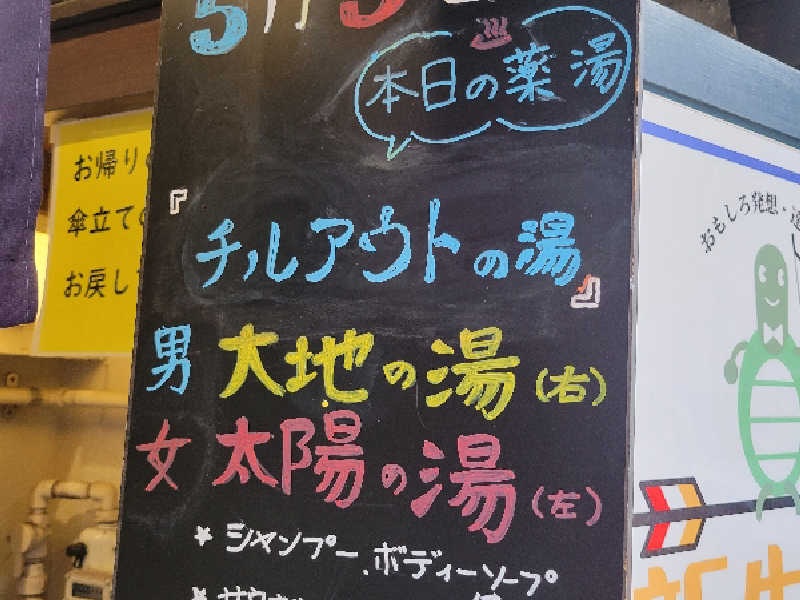 本日の薬湯
『チルアウトの湯』
男 大地の湯(右)
女 太陽の湯(左)
* シャンプー、ボディーソープ
お帰り
傘立て
お戻し
おもしろ発想・